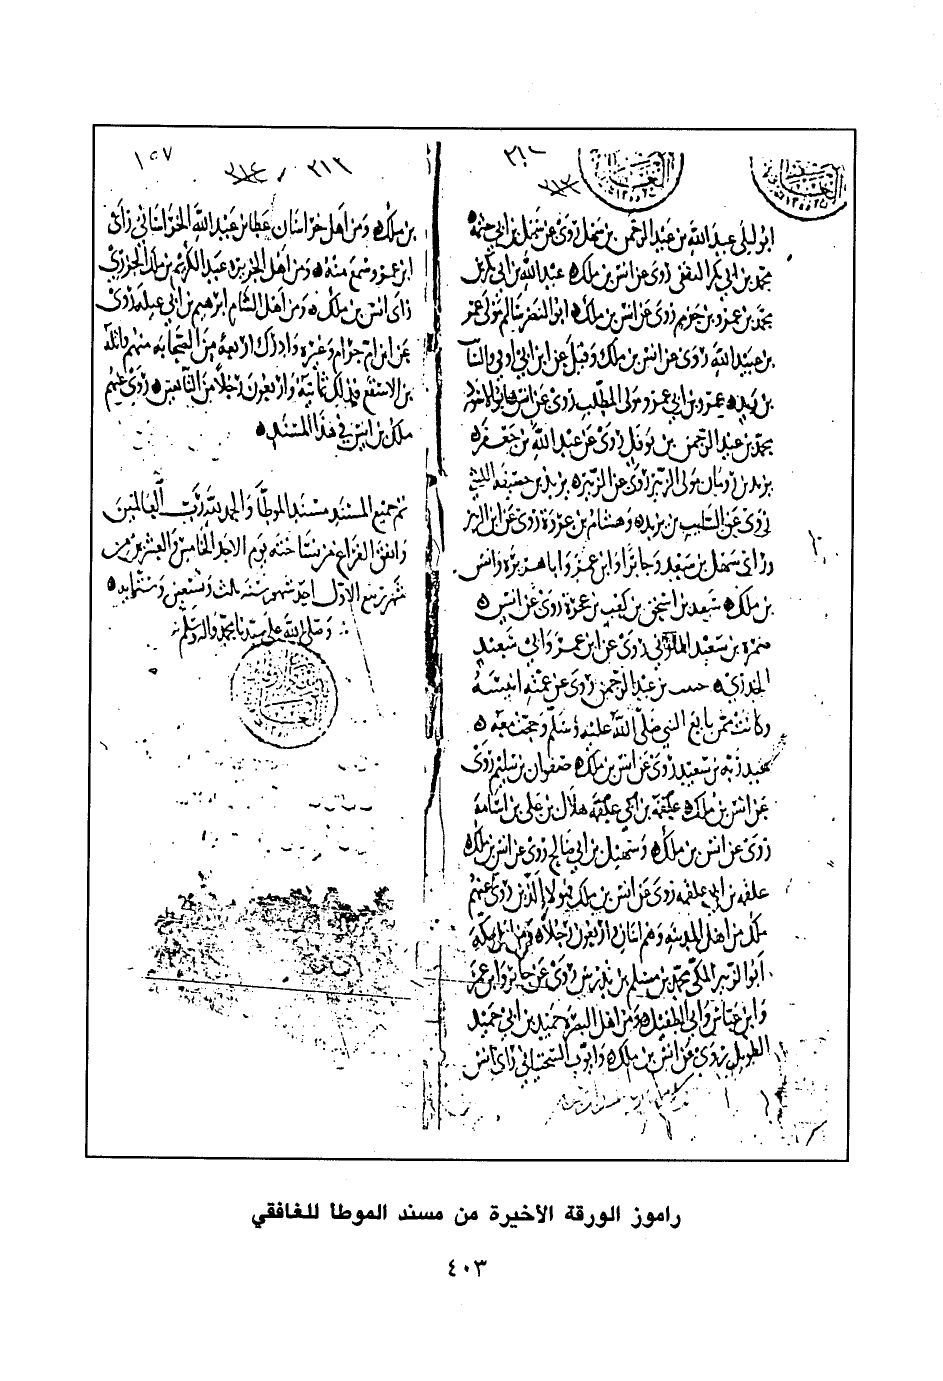 ٢١٢
٢١٣
ابو ليلى عبد الله بن عبد الرحمن بن سهل روى عن سهل بن ابي حثمة
محمد بن ابي بكر الثقفي روى عن انس بن ملك عبد الله بن ابي بكر بن
محمد بن عمرو بن حزم روى عن انس بن ملك ابو النضر سالم مولى عمر
بن عبيد الله روى عن انس بن ملك وقيل عن ابن ابي اوفى والسائب
بن يزيد عمرو بن ابي عمرو مولى المطلب روى عن انس ابو الاسود
محمد بن عبد الرحمن بن نوفل روى عن عبد الله بن جعفر
يزيد بن رومان مولى الزبير روى عن الزبير يزيد بن خصيفة الليثي
روى عن السائب بن يزيد وهشام بن عروة روى عن ابن الزبير
وراى سهل بن سعد وجابرا وابن عمر وابا هريرة وانس
بن ملك سعد بن اسحق بن كعب بن عجرة روى عن انس
ضمرة بن سعيد المازني روى عن ابن عمر وابي سعيد
الخدري خبيب بن عبد الرحمن روى عن عمته انيسة
وكانت ممن بايع النبي صلى الله عليه وسلم وحجت معه
عبد ربه بن سعيد روى عن انس بن ملك صفوان بن سليم روى
عن انس بن ملك علقمة بن ابي علقمة هلال بن علي بن اسامة
روى عن انس بن ملك وسهيل بن ابي صالح روى عن انس بن ملك
علقمه بن ابي علقمه روى عن انس بن ملك فهولا الذين روى عنهم
ملك من اهل المدينه وهم اثنان واربعون رجلا ومن اهل مكة
ابو الزبير المكي محمد بن مسلم بن تدرس روى عن جابر وابن عمر
وابن عباس وابي الطفيل ومن اهل البصرة حميد بن ابي حميد
الطويل روى عن انس بن ملك وايوب السختياني راى انس
١٥٧
٢١٤ / ٢١٣
بن ملك ومن اهل خراسان عطا بن عبد الله الخراساني راى
ابن عمر وسمع منه ومن اهل الجزيرة عبد الكريم بن ملك الجزري
راى انس بن ملك ومن اهل الشام ابرهيم بن ابي عبلة روى
عن ابن ام حرام وغيره وادرك اربعة من الصحابة منهم واثلة
بن الاسقع فذلك ثمانية واربعون رجلا من التابعين روى عنهم
ملك بن انس في هذا المسند
تم جميع المسند مسند الموطا والحمد لله رب العالمين
وافق الفراغ من نساخته يوم الاحد الخامس والعشرين من
شهر ربيع الاول احد شهور سنة ثلث وتسعين وستمايه
وصلى الله على سيدنا محمد واله وسلم
راموز الورقة الأخيرة من مسند الموطأ للغافقي
٤٠٣